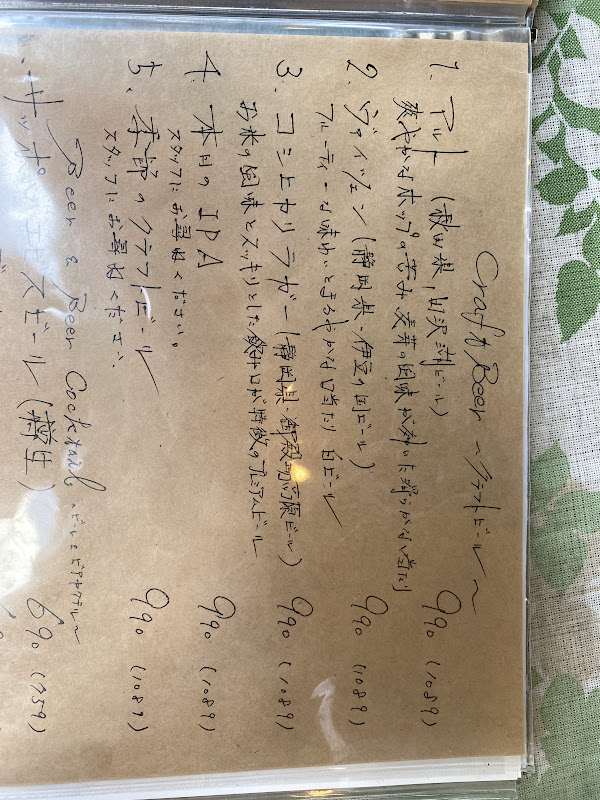 Craft Beer ~クラフトビール~
1. アルト (秋田県,田沢湖ビール) 990 (1089)
爽やかなホップの苦み 麦芽の風味が利いた滑らかな口当たり
2. ヴァイツェン (静岡県・伊豆の国ビール) 990 (1089)
フルーティーな味わいとまろやかな口当たり 白ビール
3. コシヒカリラガー (静岡県・御殿場高原ビール) 990 (1089)
お米の風味とスッキリとした飲み口が特徴のプレミアムビール
4. 本日の IPA 990 (1089)
スタッフにお尋ねください。
5. 季節のクラフトビール 990 (1089)
スタッフにお尋ねください.
Beer & Beer Cocktail ~ビール&ビアカクテル~
サッポロ ビール (樽生) 690 (759)